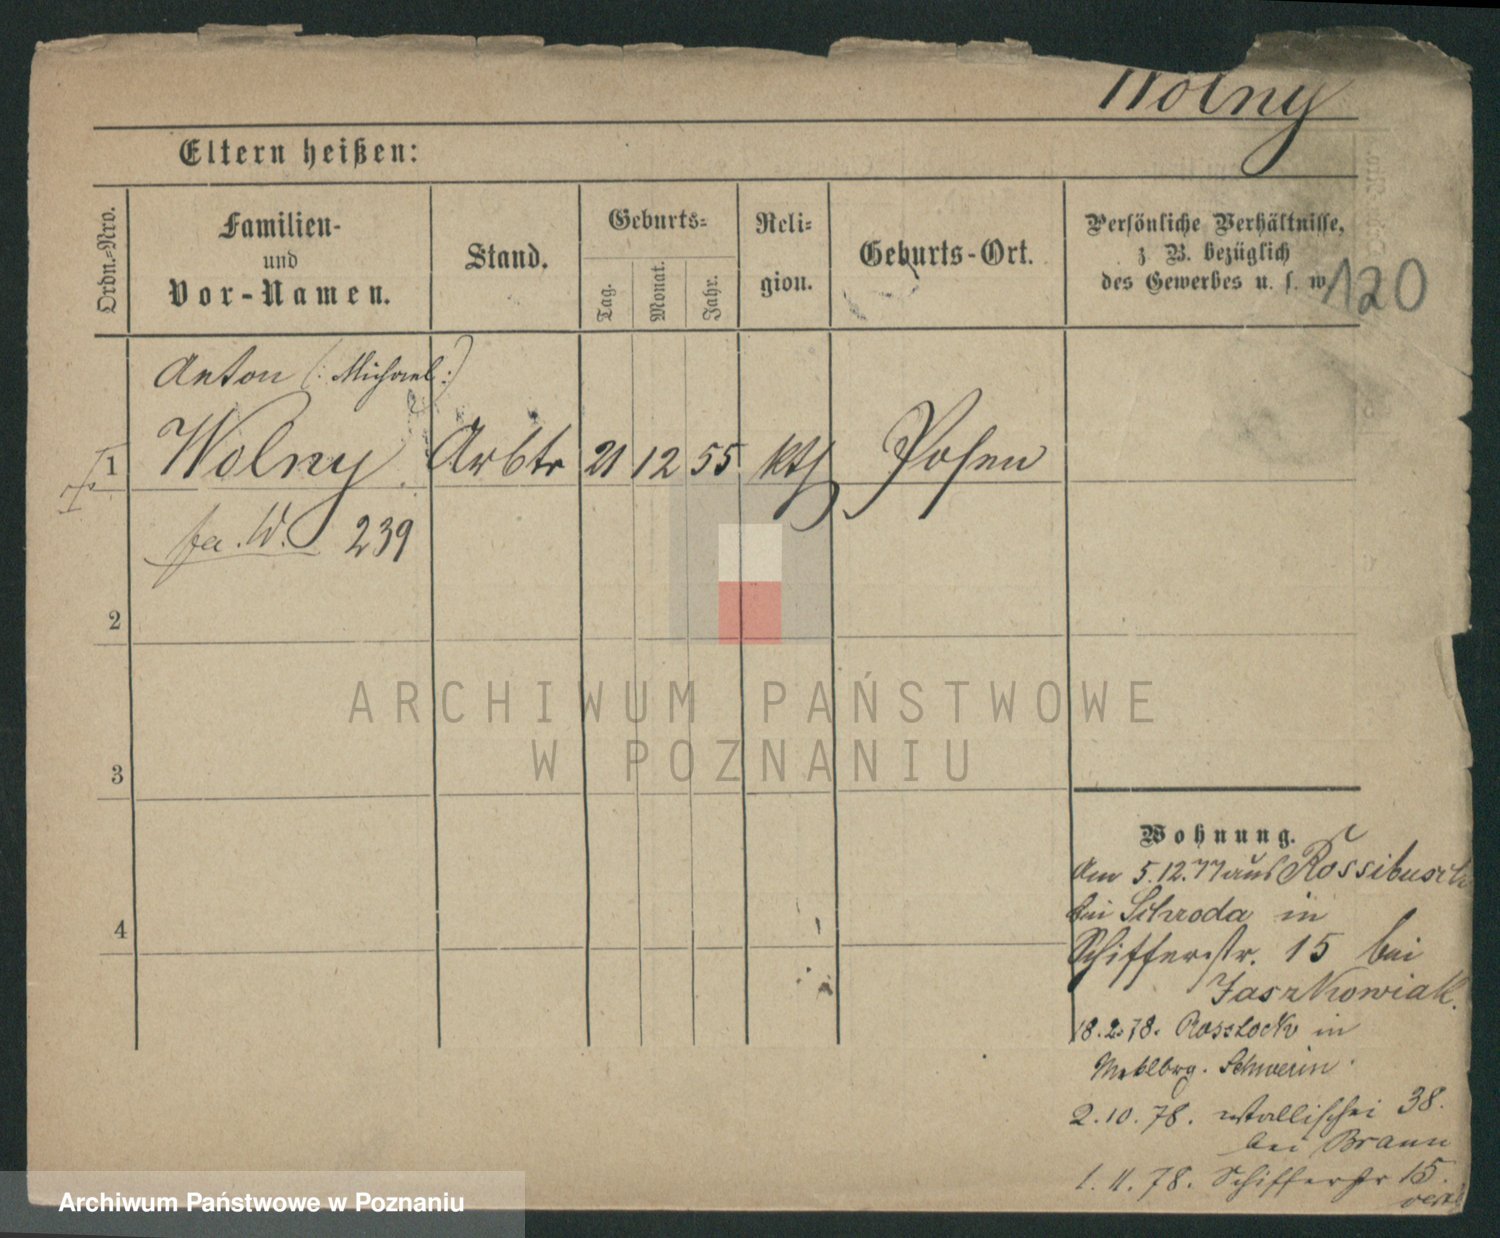 Wolny
Eltern heißen:
Ordn.-Nro.
Familien-
und
Vor-Namen.
Stand.
Geburts-
Tag.
Monat.
Jahr.
Reli-
gion.
Geburts-Ort.
Persönliche Verhältnisse,
z. B. bezüglich
des Gewerbes u. s. w.
120
Anton (: Michael :)
1 Wolny Arbtr 21 12 55 kth Posen
fa. W. 239
2
3
4
Wohnung.
Am 5.12.77 aus
bei Schroda in
Schifferstr. 15 bei
Jaszkowiak.
18.2.78. Rosstock in
Meklbrg. Schwerin.
2.10.78. Wallischei 38.
bei Braun
1. 11. 78. Schifferstr 15.
ARCHIWUM PAŃSTWOWE
W POZNANIU
Archiwum Państwowe w Poznaniu